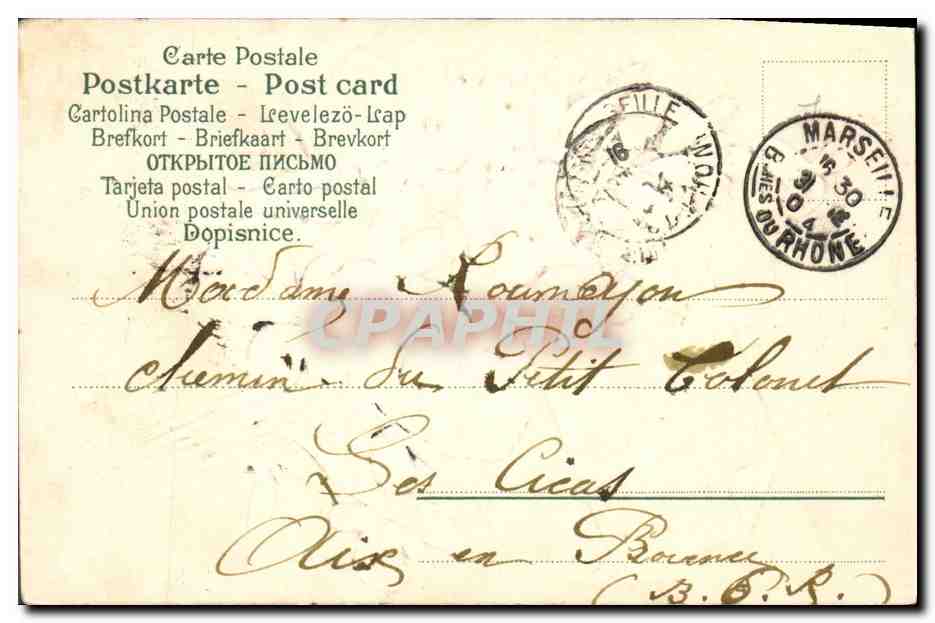 Carte Postale
Postkarte - Post card
Cartolina Postale - Levelezö-Lap
Brefkort - Briefkaart - Brevkort
ОТКРЫТОЕ ПИСЬМО
Tarjeta postal - Carto postal
Union postale universelle
Dopisnice.
MARSEILLE
16 30
31 12
04
BCHES DU RHONE
Madame Roumayon
CPAPHIL
chemin du Petit Tolonet
Les Cicas
Aix en Provence
(B. D. R.)